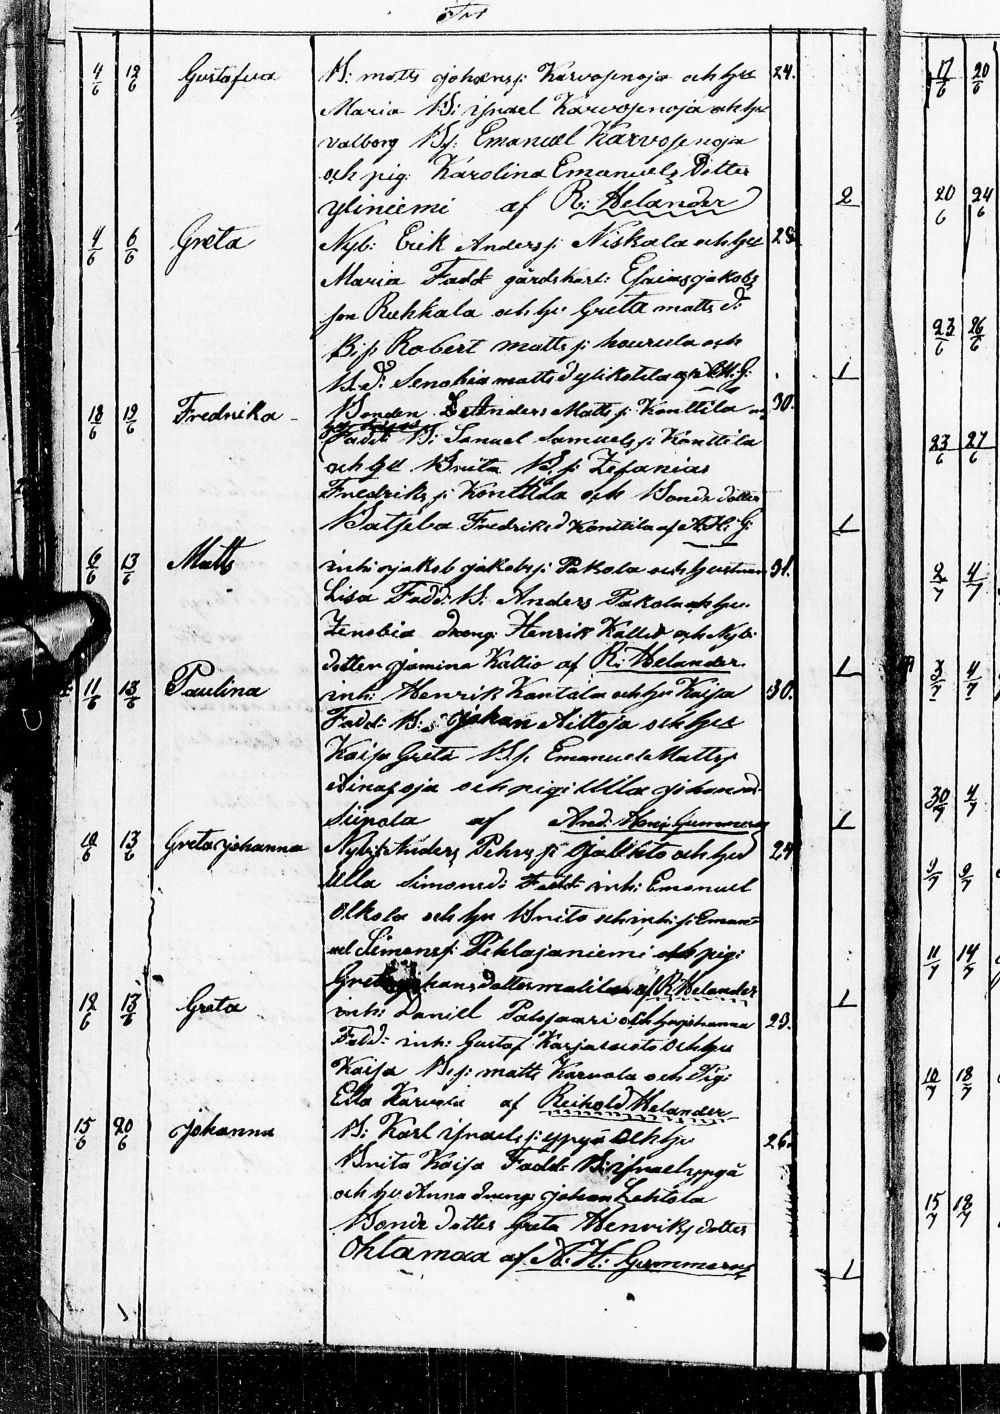 4/6 12/6 Gustafva B: matts johanss: Karvosenoja och hu 24.
Maria B: israel Karvosenoja och hu
valborg Bs: Emanuel Karvosenoja
och pig: Karolina Emanuels Dotter
yliniemi af R: Helander 2
4/6 6/6 Greta Nyb: Erik Anderss: Niskala och hu 28
Maria Fadd: gårdskarl: Esaias jakobs
son Ruhkala och hu Greta matts d:
B: s: Robert matts s: och
B. d: Senobia matts d ylikotila af A.H.G: 1
18/6 19/6 Fredrika Bonden Anders Matts s: Konttila 30.
Fadd: B: Samuel Samuels s: Konttila
och hu Brita B. s: Zefanias
Fredriks s: Konttila och Bonde dotter
Batseba Fredriks d Konttila af A: H: G: 1
6/6 13/6 Matts inh: jakob jakobs s: Pakola och hustrun 31.
Lisa Fadd: B: Anders Pakola och hu
Zenobia dreng: Henrik Kallio och Nyb:
dotter jamina Kallio af R: Helander. 1
11/6 13/6 Paulina inh: Henrik Kantola och hu Kaisa 30.
Fadd: B: johan Aittoja och hu
Kaisa Greta B. s. Emanuel Matts s:
Ainasoja och pig: Ulla johans d.
Siipola af And: Henr: Gummerus 1
10/6 13/6 Greta johanna Nyb: Anders Pehrs s: och hu 24
Ulla Simons d: Fadd: inh: Emanuel
Olkola och hu Brita och inh: s: Eman=
uel Simons s: Pihlajaniemi och pig:
Greta johans dotter af R Helander 1
12/6 13/6 Greta inh: Daniel Palojaari och hu johanna 29.
Fadd: inh: Gustaf Karjaluoto och hu
Kaisa B: s: matts Karvola och Pig:
Ella Karvola af Reihold Helander
15/6 20/6 johanna B: Karl israels s: yppyä och hu 26
Brita Kaisa Fadd: B: israel yppyä
och hu Anna dreng: johan Lehtola
Bonde dotter Greta Henriks dotter
Ohtamaa af A: H: Gummerus 1
17/6 20/6
20/6 24/6
23/6 26/6
23/6 27/6
2/7 4/7
3/7 4/7
30/7 4/7
9/7 9/7
11/7 14/7
10/7 18/7
15/7 18/7